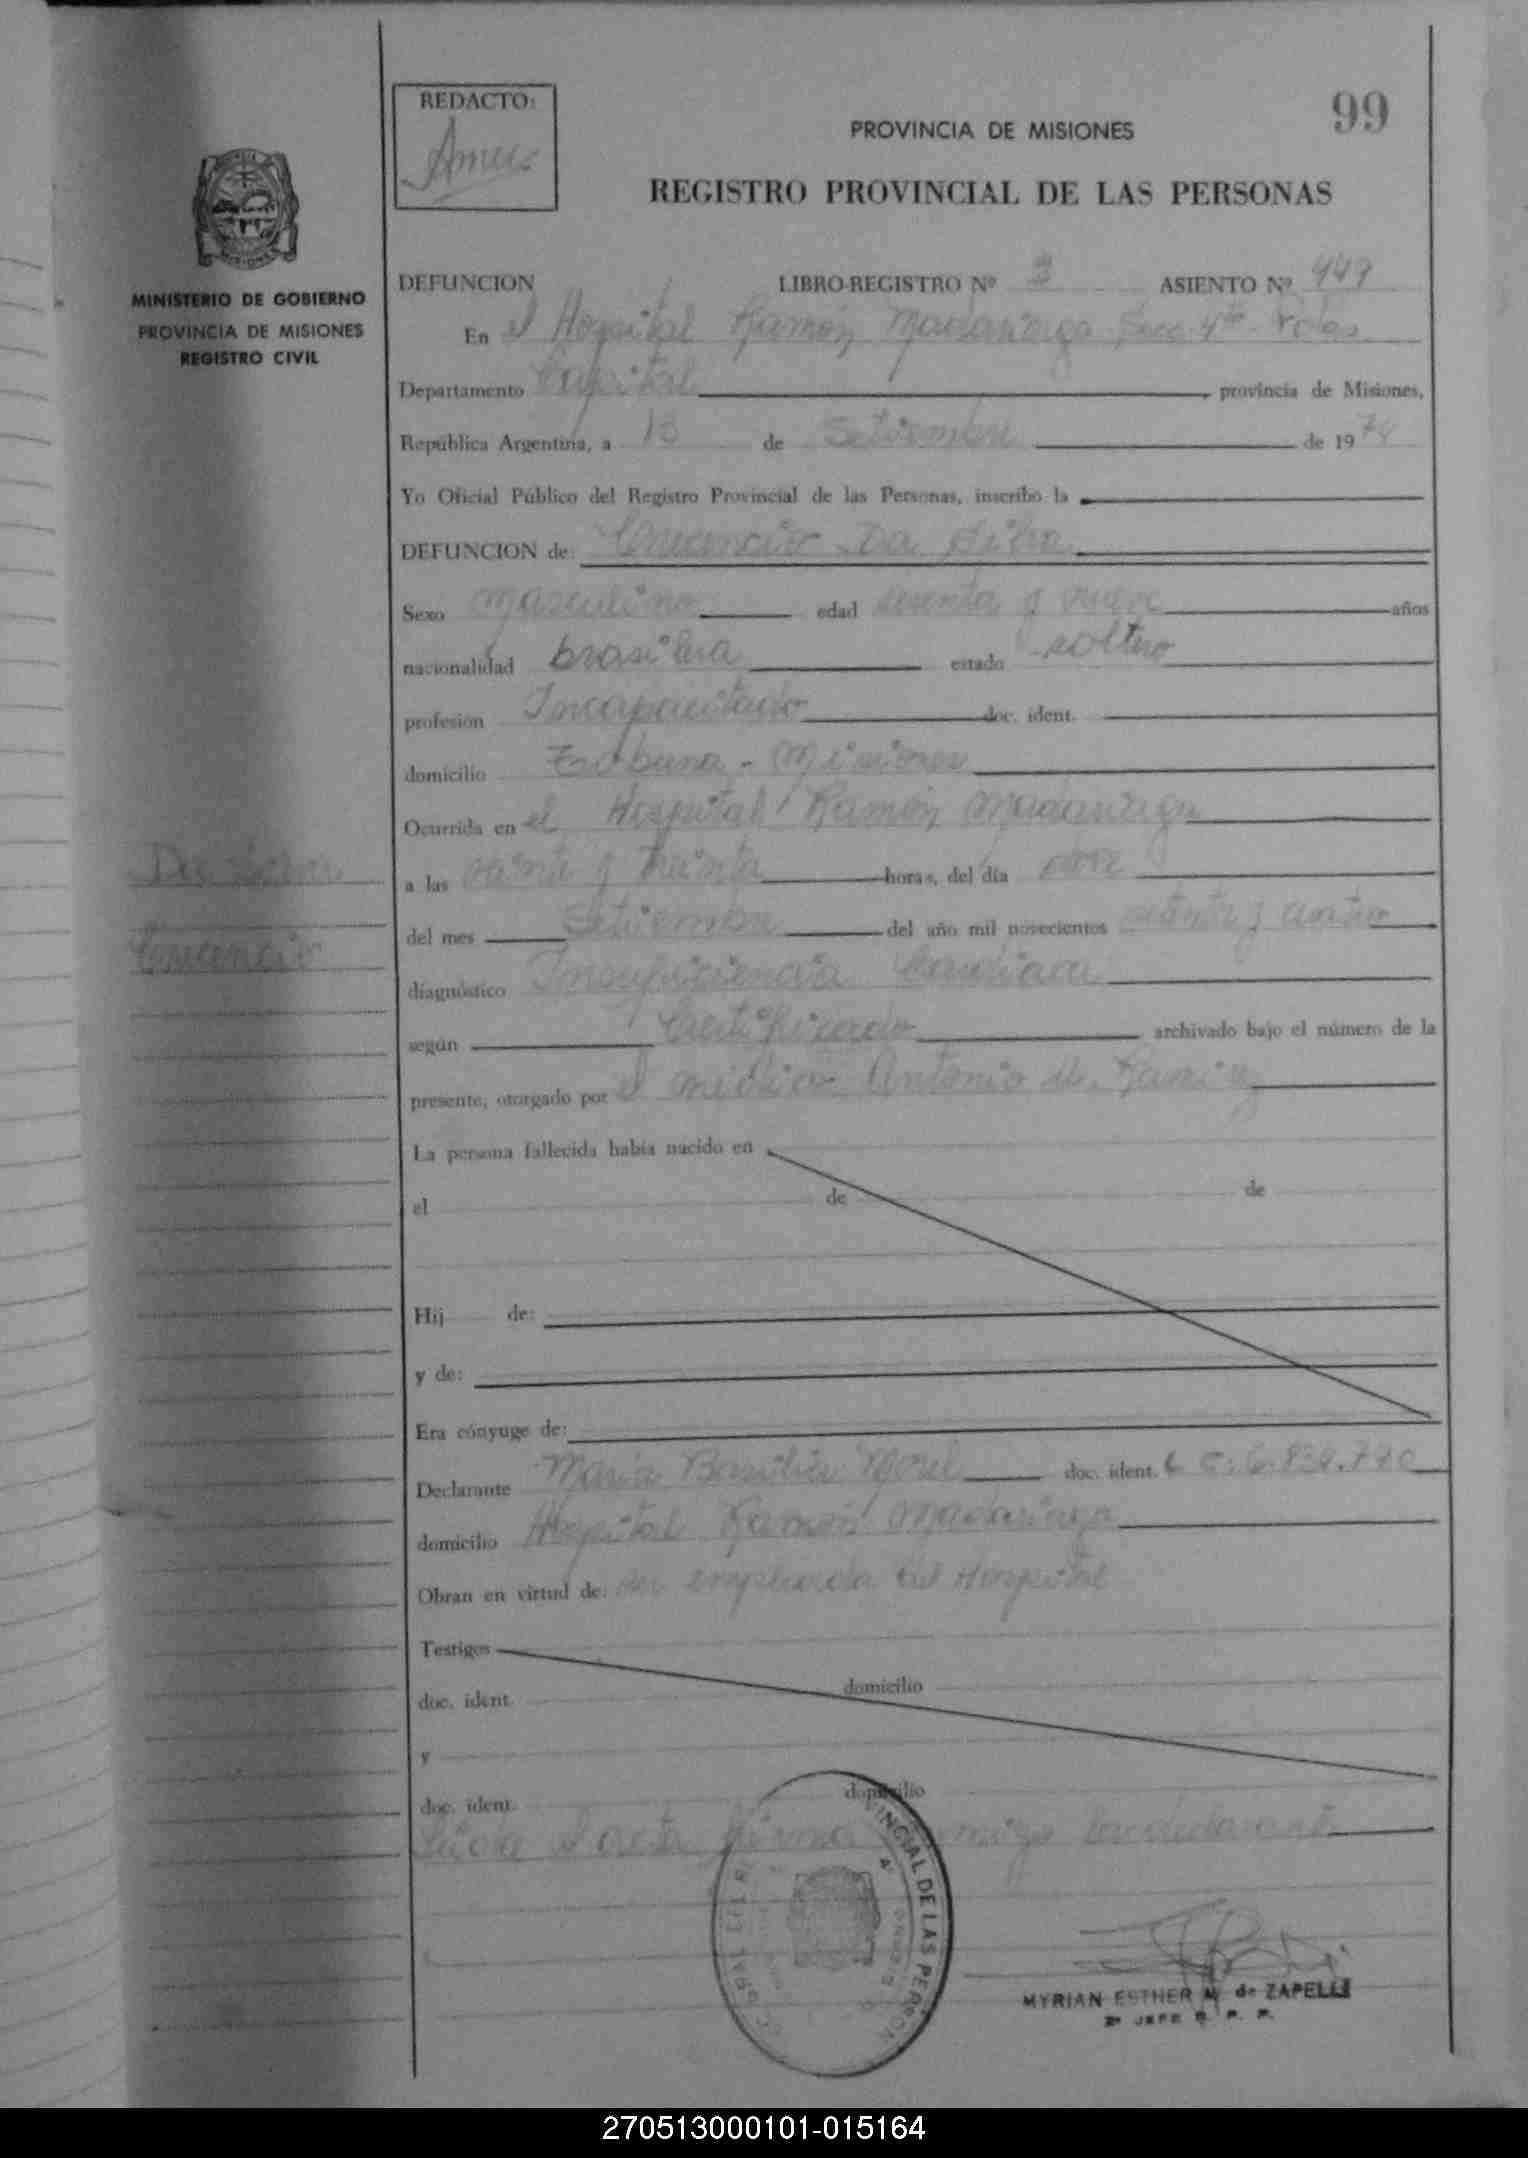 REDACTO:
99
PROVINCIA DE MISIONES
REGISTRO PROVINCIAL DE LAS PERSONAS
MINISTERIO DE GOBIERNO
PROVINCIA DE MISIONES
REGISTRO CIVIL
DEFUNCION LIBRO-REGISTRO Nº 3 ASIENTO Nº 449
En el Hospital Ramón Madariaga Secc 4ta
Departamento Capital provincia de Misiones,
República Argentina, a 13 de Setiembre de 1974
Yo Oficial Público del Registro Provincial de las Personas, inscribo la
DEFUNCION de: Da Silva
Sexo Masculino edad sesenta y nueve años
nacionalidad brasilera estado soltero
profesión Incapacitado doc. ident.
domicilio Misiones
Ocurrida en el Hospital Ramón Madariaga
a las y treinta horas, del día
del mes Setiembre del año mil novecientos setenta y cuatro
diagnóstico Insuficiencia Cardiaca
según Certificado archivado bajo el número de la
presente, otorgado por el médico Antonio M. Ramirez
La persona fallecida había nacido en
el de de
Hij de:
y de:
Era cónyuge de:
Declarante María Basilia Morel doc. ident. L C: 6.834.770
domicilio Hospital Ramón Madariaga
Obran en virtud de: ser empleada del Hospital
Testigos
doc. ident. domicilio
y
doc. ident. domicilio
Leída el acta firma conmigo la declarante
Da Silva
VINCIAL DE LAS PERSON
MYRIAN ESTHER M. de ZAPELLI
2º JEFE R. P. P.
270513000101-015164